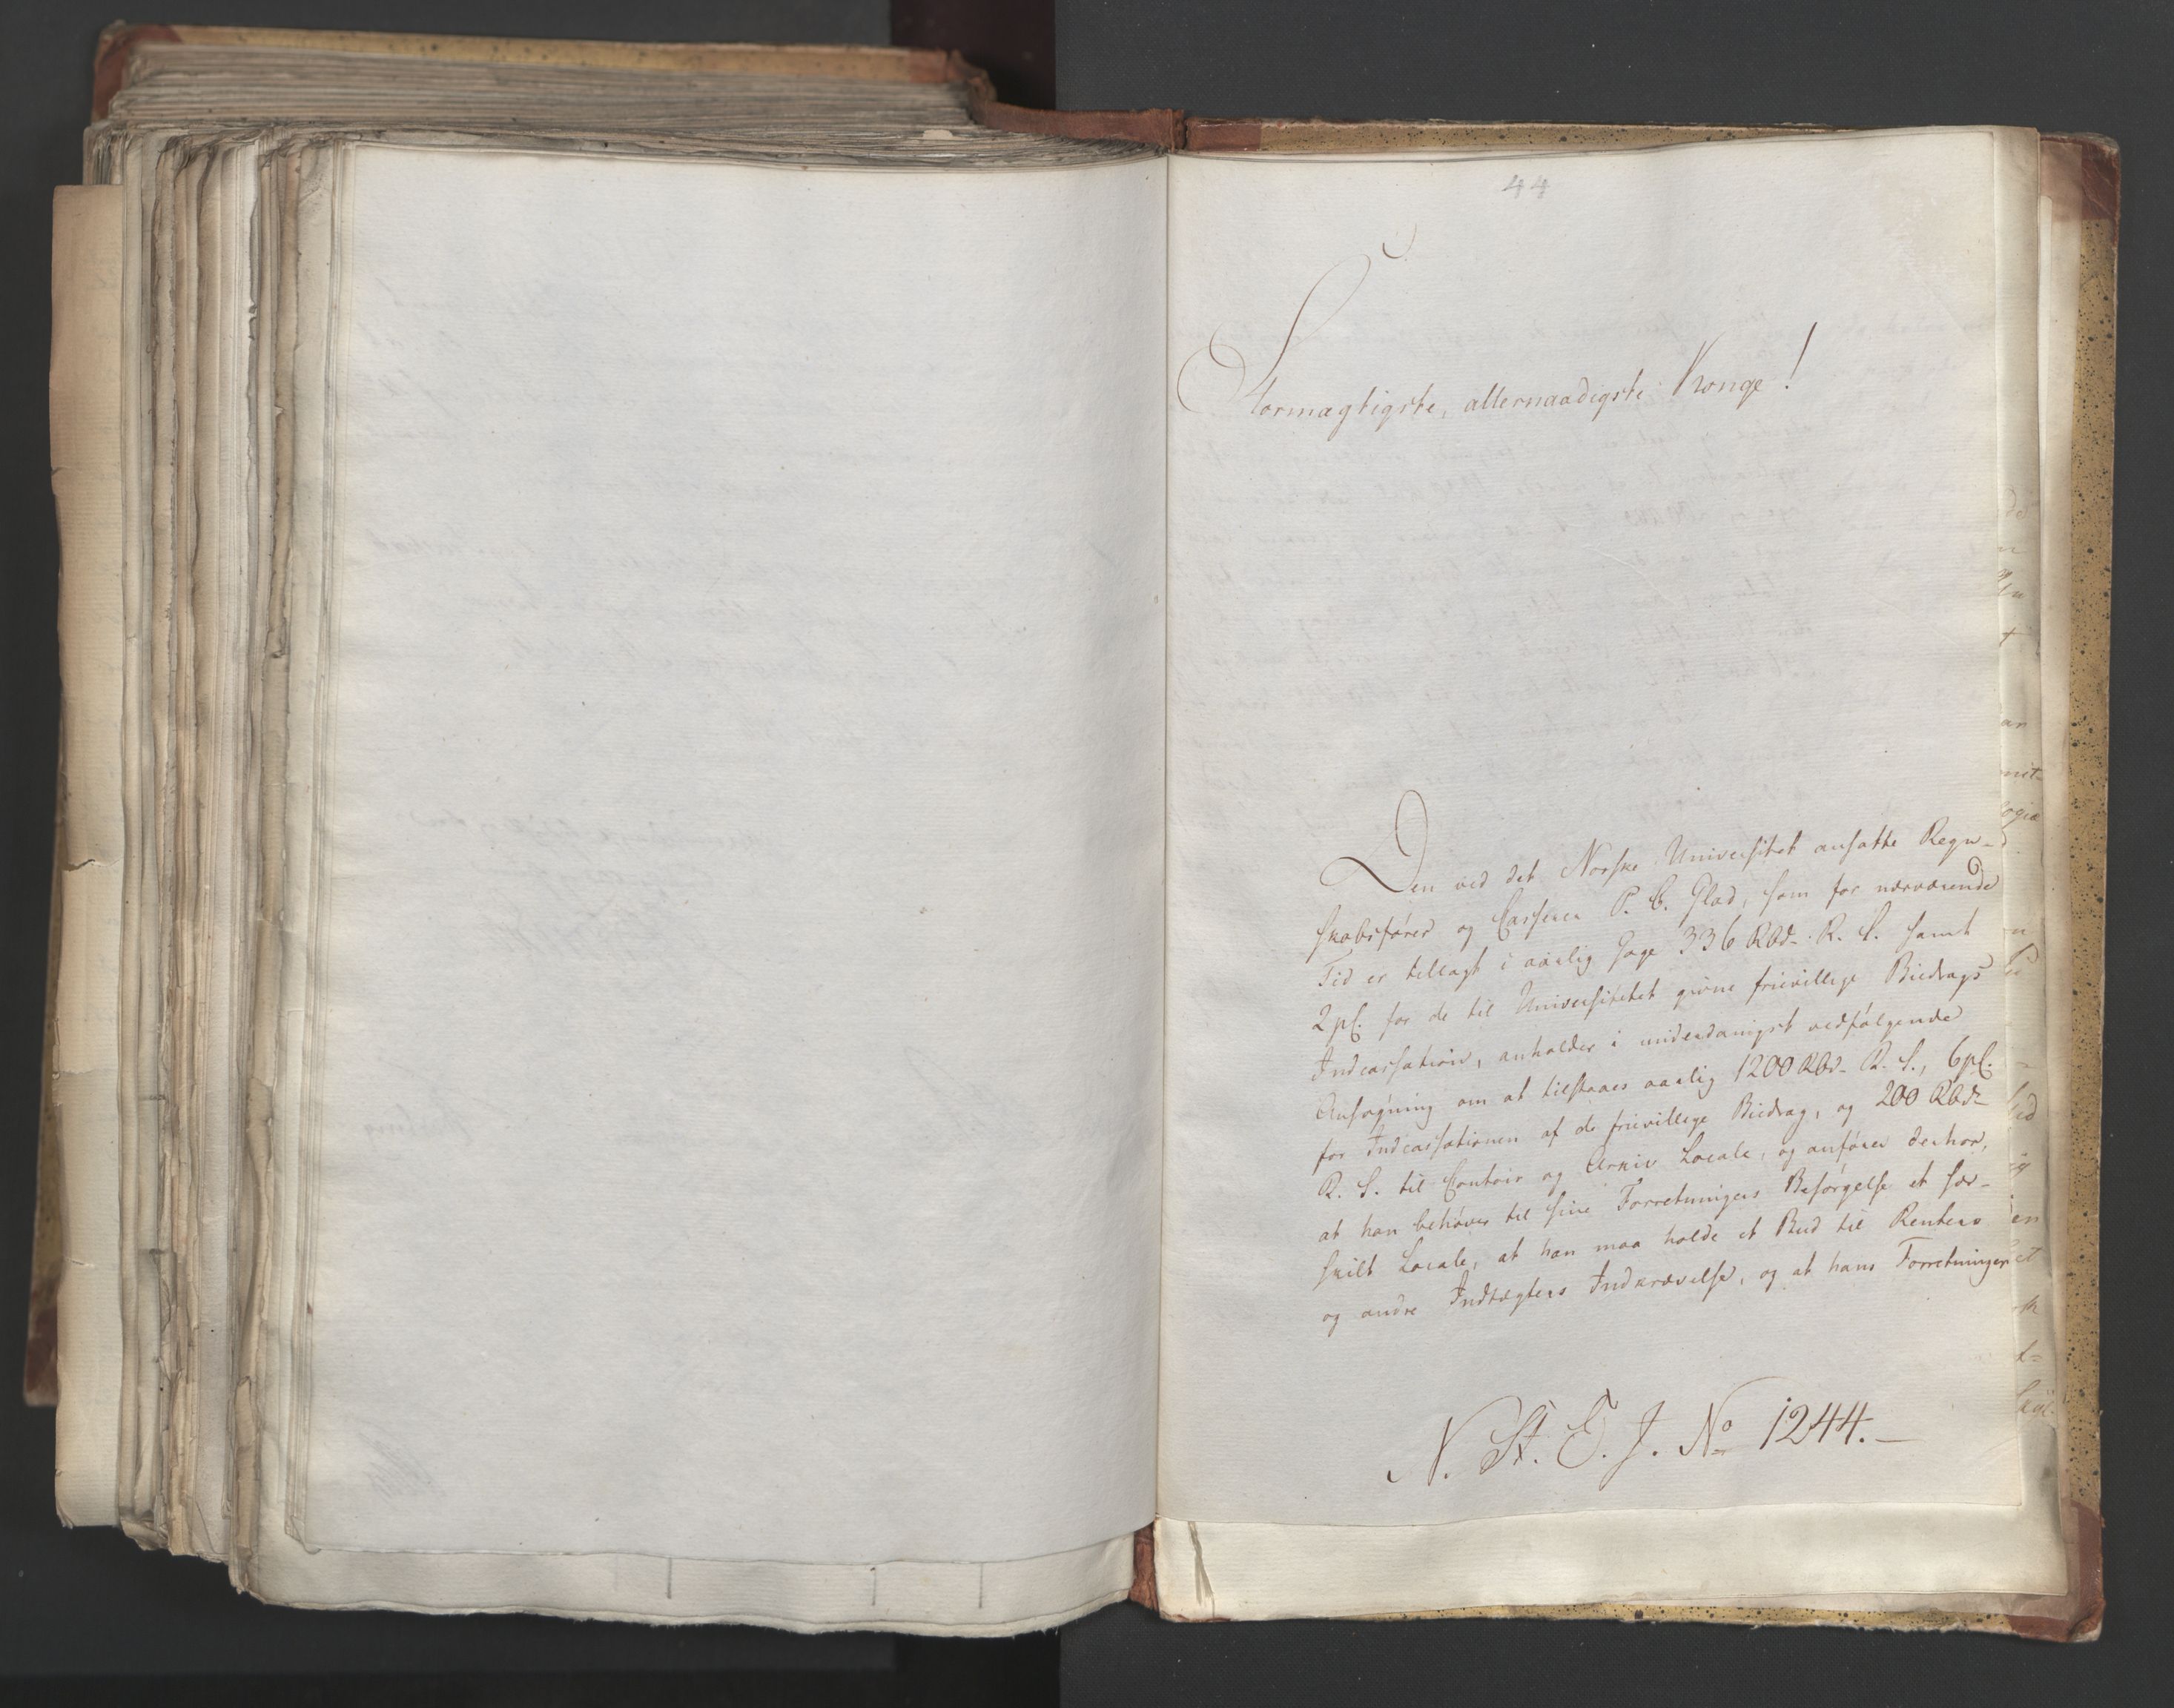 44
Stormægtigste, allernaadigste Konge!
Den ved det Norske Universitet ansatte Regn-
skabsfører og Casserer P. C. Glad, som for nærværende
Tid er tillagt i aarlig Gage 336 Rbd. R. S. samt
2 pC. for de til Universitetet givne frievillige Bidrags
Indcassation, anholder i underdanigst vedfølgende
Ansøgning om at tilstaaes aarlig 1200 Rbd. R. S., 6 pC.
for Indcassationen af de frievillige Bidrag, og 200 Rbd.
R. S. til Contoir og Arkiv Locale, og anfører derhos,
at han behøver til sine Forretningers Besørgelse et sær-
skilt Locale, at han maa holde et Bud til Renters
og andre Indtægters Indkrævelse, og at hans Forretninger
N. St. E. J. No 1244.